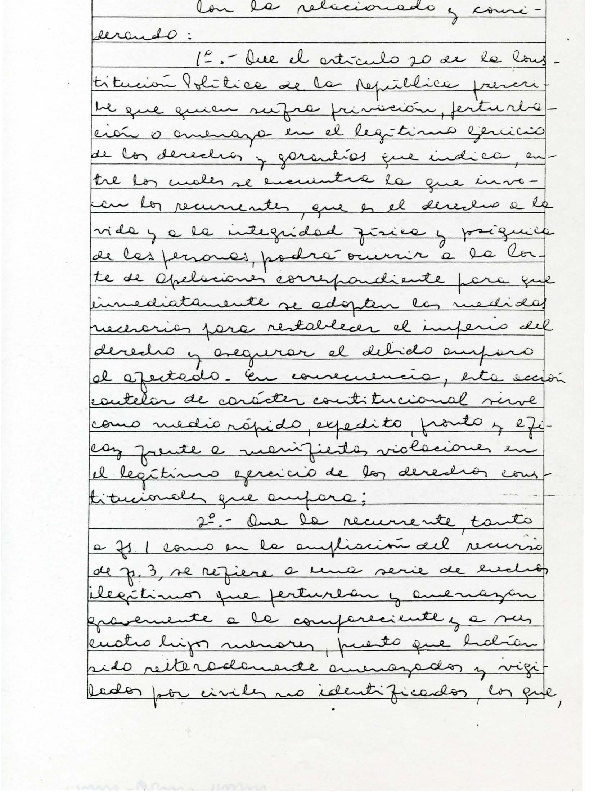 Con la relacionado y consi-
derando:
1º.- Que el artículo 20 de la Cons-
titución Política de la República prescri-
be que quien sufra privación, perturba-
ción o amenaza en el legítimo ejercicio
de los derechos y garantías que indica, en-
tre los cuales se encuentra la que invo-
can los recurrentes, que es el derecho a la
vida y a la integridad física y psíquica
de las personas, podrá ocurrir a la Cor-
te de Apelaciones correspondiente para que
inmediatamente se adopten las medidas
necesarias para restablecer el imperio del
derecho y asegurar el debido amparo
al afectado. En consecuencia, esta acción
cautelar de carácter constitucional sirve
como medio rápido, expedito, pronto y efi-
caz frente a manifiestas violaciones en
el legítimo ejercicio de los derechos cons-
titucionales que ampara;
2º.- Que la recurrente, tanto
a fs. 1 como en la ampliación del recurso
de p. 3, se refiere a una serie de hechos
ilegítimos que perturban y amenazan
gravemente a la compareciente y a sus
cuatro hijos menores, puesto que habían
sido reiteradamente amenazados y vigi-
lados por civiles no identificados, los que,